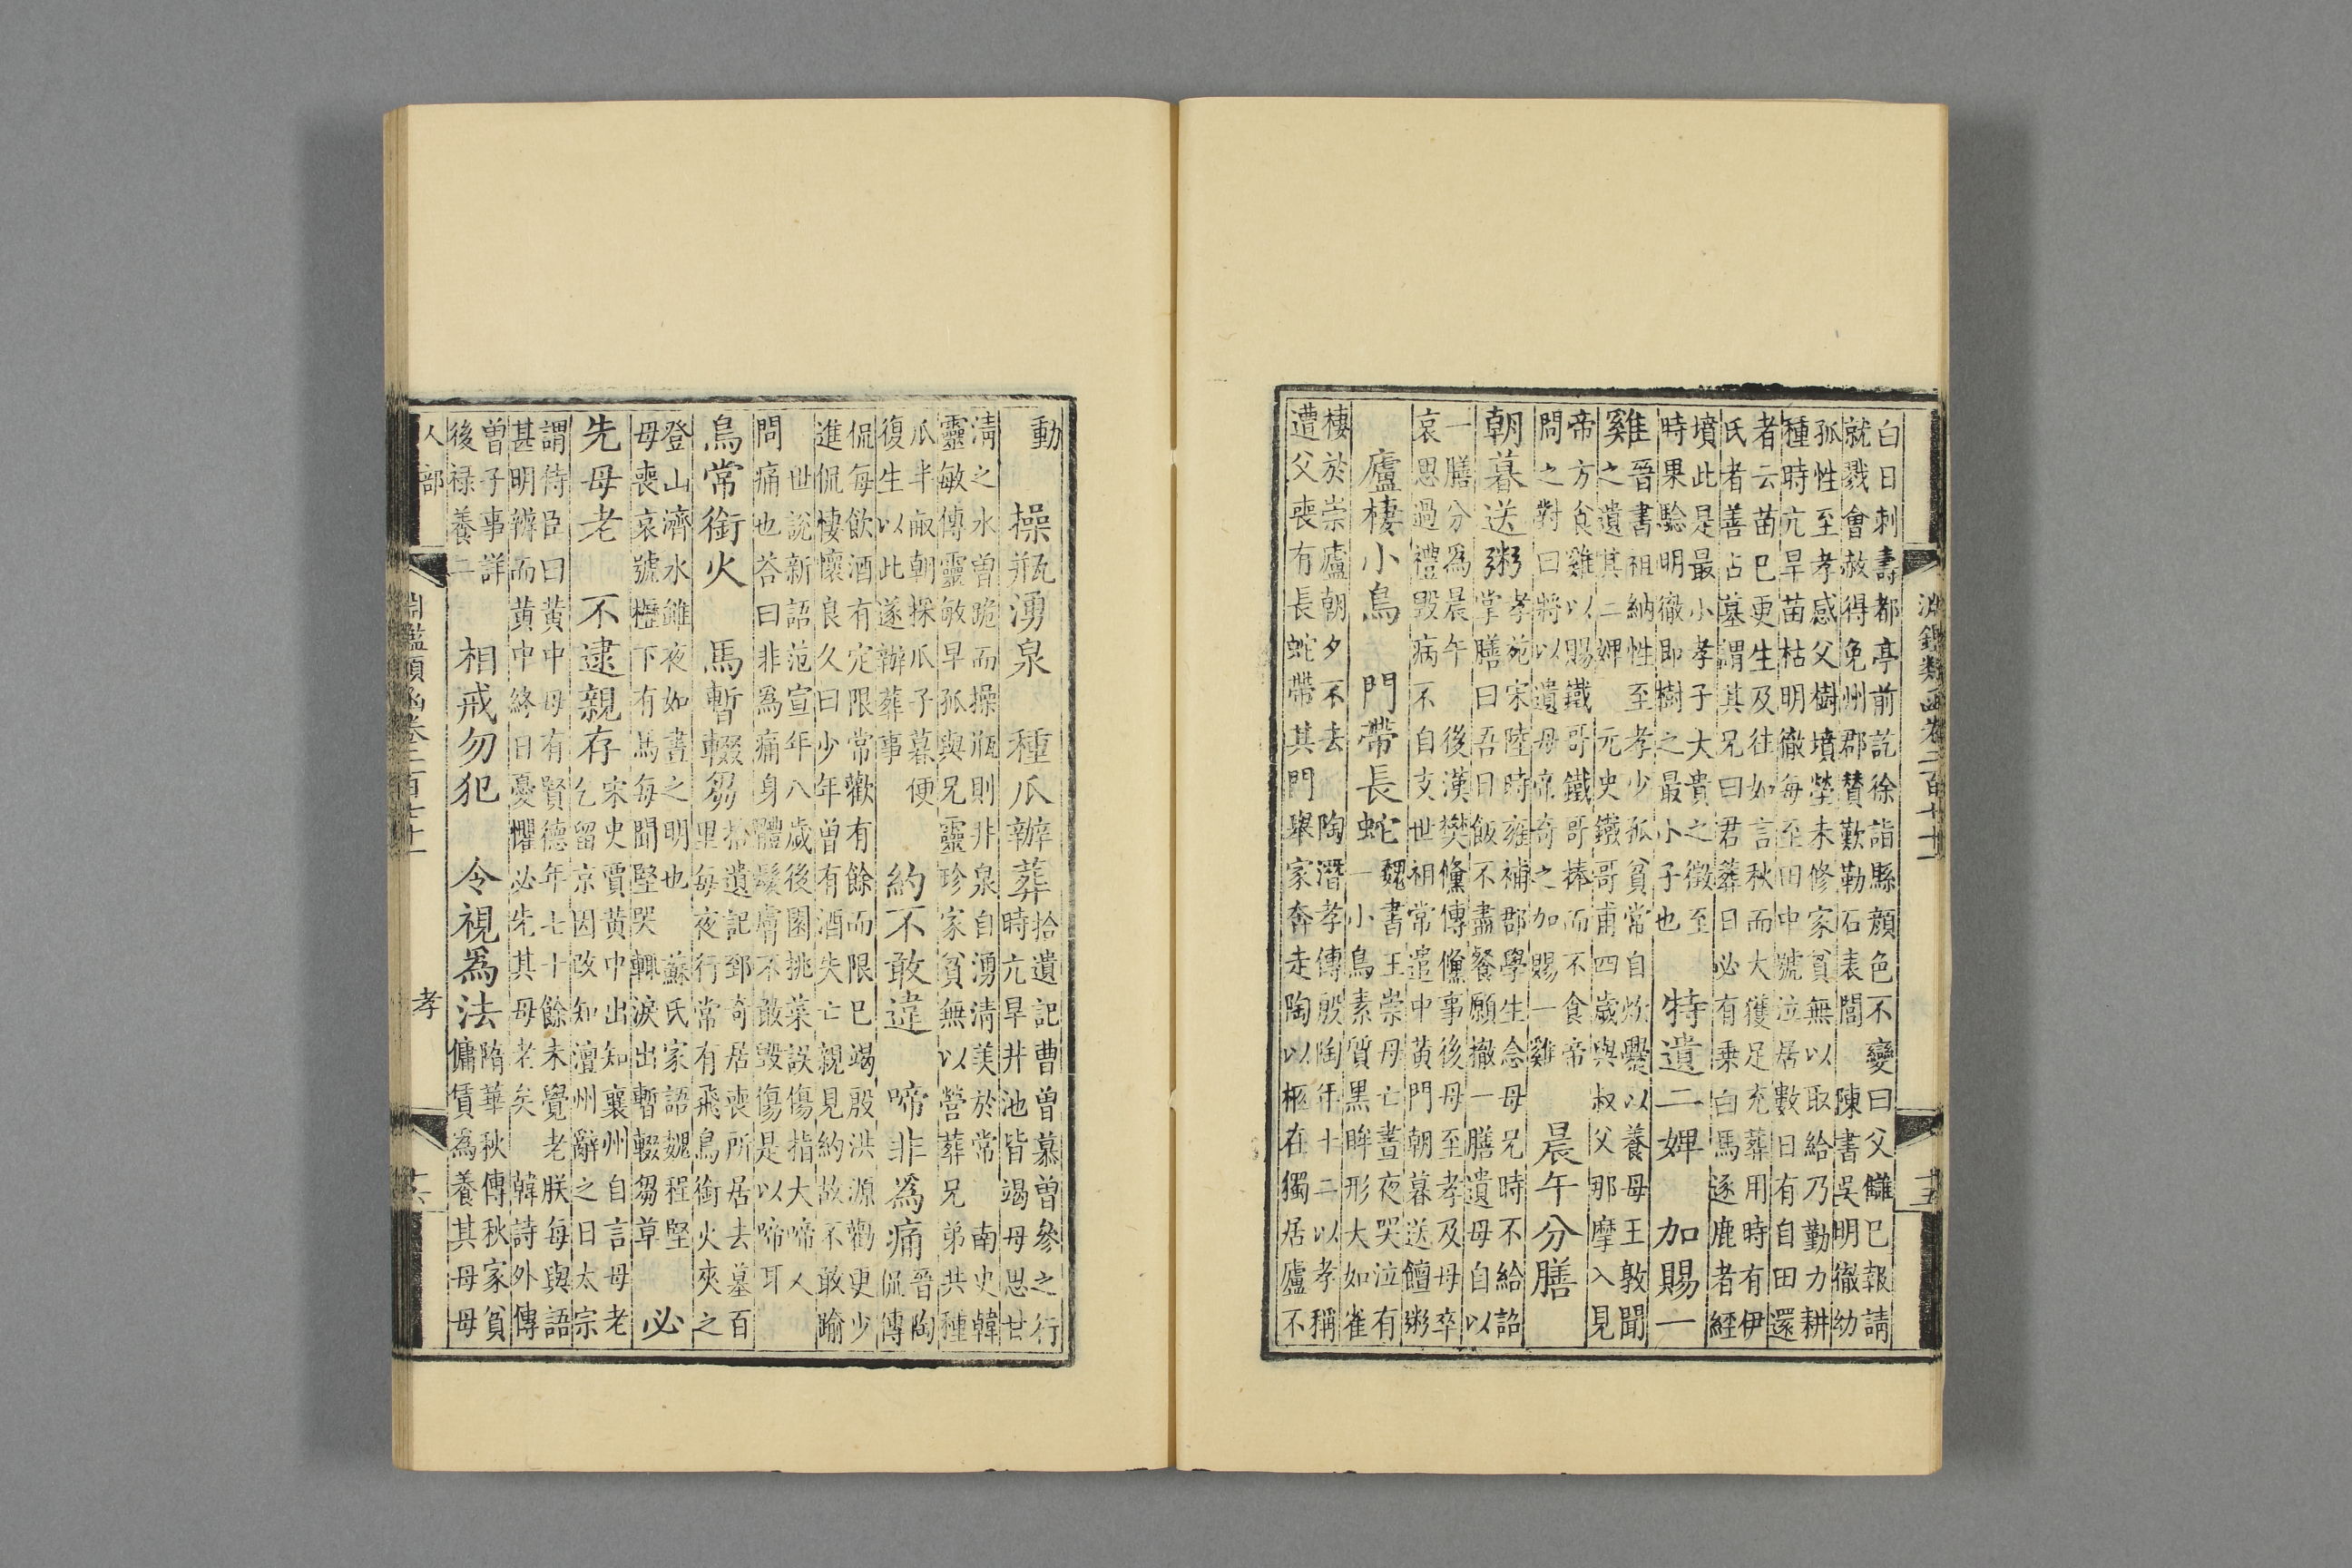 淵鑑類函卷二百七十一
十五
白日刺壽都亭前訖徐詣縣顏色不變曰父讎已報請
就戮會赦得免州郡贊歎勒石表閭　陳書吳明徹幼
孤性至孝感父樹墳塋未修家貧無以取給乃勤力耕
種時亢旱苗枯明徹每至田中號泣居數日有自田還
者云苗已更生及往如言秋而大獲足充葬用時有伊
氏者善占墓謂其兄曰君葬日必有乗白馬逐鹿者經
墳此是最小孝子大貴之徵至
時果驗明徹即樹之最小子也
特遺二婢　加賜一
雞
晉書祖納性至孝少孤貧常自炊爨以養母王敦聞
之遺其二婢　元史鐵哥甫四歲與叔父那摩入見
帝方食雞以賜鐵哥鐵哥捧而不食帝
問之對曰將以遺母帝奇之加賜一雞
晨午分膳
朝暮送粥
孝苑宋陸時雍補郡學生念母兄時不給詔
掌膳曰吾日飯不盡餐願撤一膳遺母自以
一膳分爲晨午　後漢樊儵傳儵事後母至孝及母卒
哀思過禮毀病不自支世祖常遣中黃門朝暮送饘粥
廬棲小鳥　門帶長蛇
魏書王崇母亡晝夜哭泣有
一小鳥素質黑眸形大如雀
棲於崇廬朝夕不去　陶潛孝傳殷陶年十二以孝稱
遭父喪有長蛇帶其門舉家奔走陶以柩在獨居廬不
動　操瓶湧泉　種瓜辦葬
拾遺記曹曾慕曾參之行
時亢旱井池皆竭母思甘
清之水曾跪而操瓶則井泉自湧清美於常　南史韓
靈敏傳靈敏早孤與兄靈珍家貧無以營葬兄弟共種
瓜半畝朝採瓜子暮便
復生以此遂辦葬事
約不敢違　啼非爲痛
晉陶
侃傳
侃每飲酒有定限常歡有餘而限已竭殷洪源勸更少
進侃悽懷良久曰少年曾有酒失亡親見約故不敢踰
世說新語范宣年八歲後園挑菜誤傷指大啼人
問痛也答曰非爲痛身體髮膚不敢毀傷是以啼耳
鳥常銜火　馬暫輟芻
拾遺記郅奇居喪所居去墓百
里每夜行常有飛鳥銜火夾之
登山濟水雖夜如晝之明也　蘇氏家語魏程堅
母喪哀號櫪下有馬每聞堅哭輒淚出暫輟芻草
必
先母老　不逮親存
宋史賈黃中出知襄州自言母老
乞留京因改知澶州辭之日太宗
謂侍臣曰黃中母有賢德年七十餘未覺老朕每與語
甚明辨而黃中終日憂懼必先其母老矣　韓詩外傳
曾子事詳
後祿養二
相戒勿犯　令視爲法
隋華秋傳秋家貧
傭賃爲養其母母
人部
淵鑑類函卷二百七十一
孝
十六